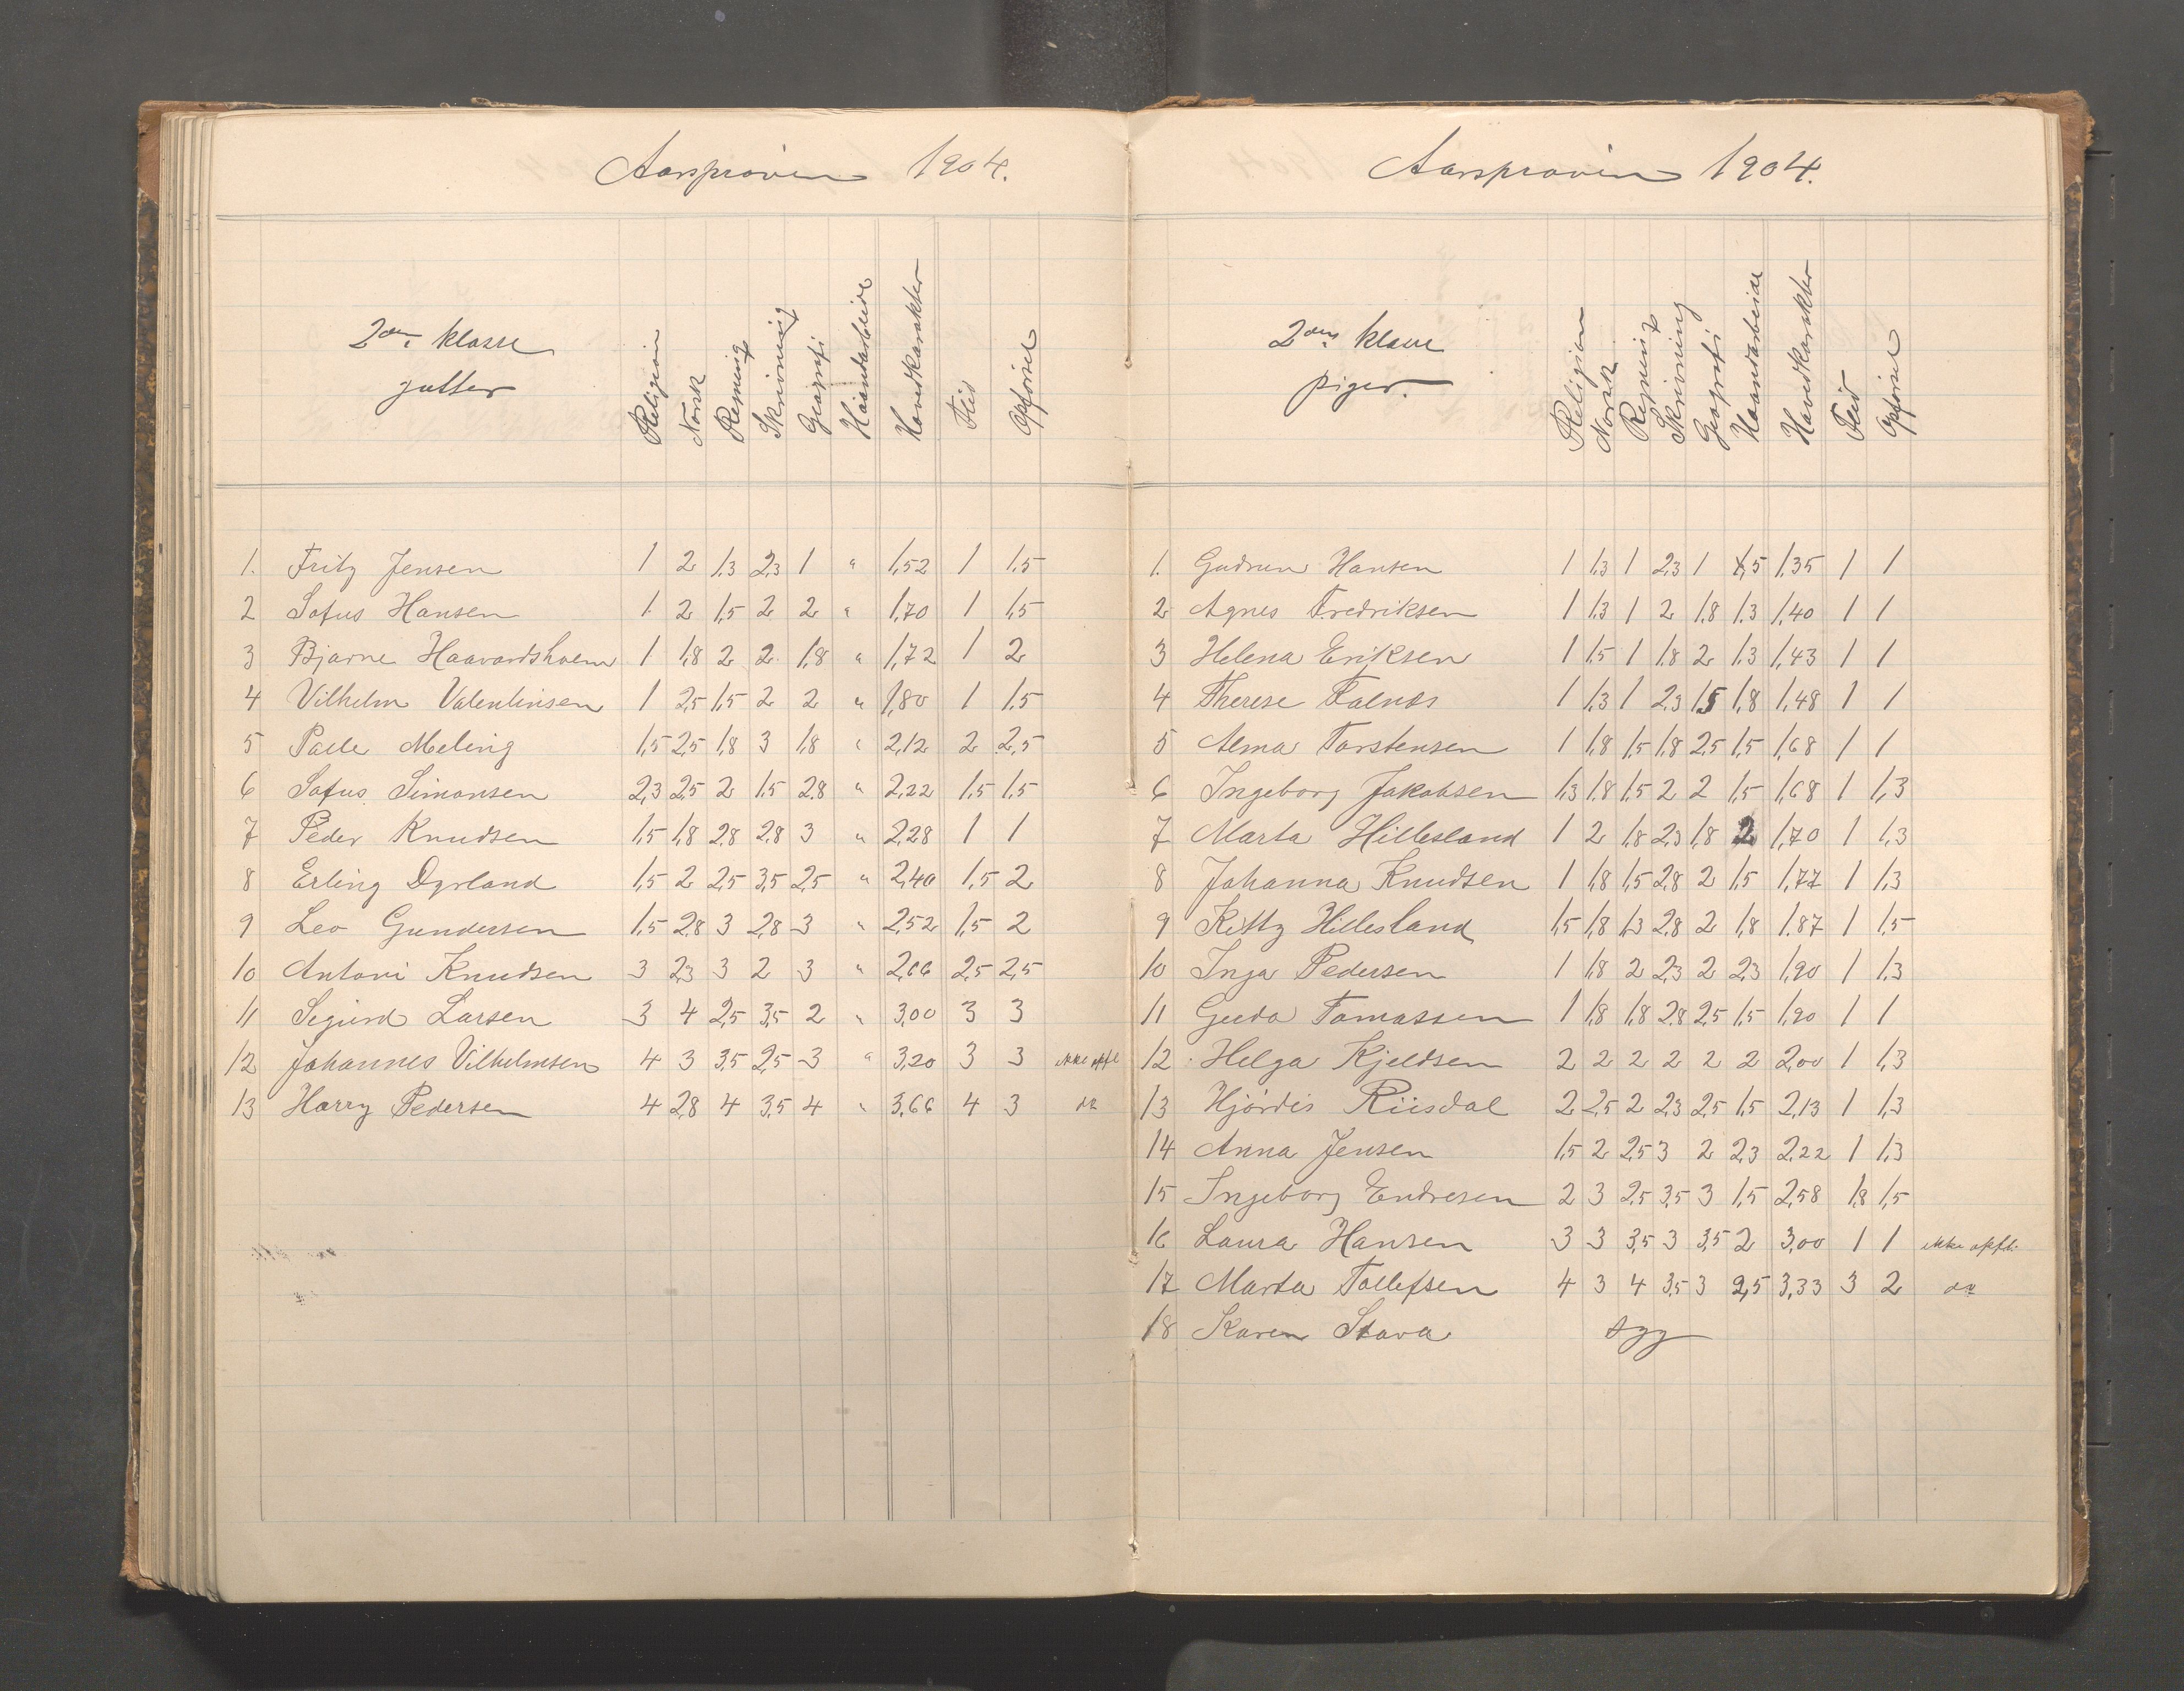 Aarsprøven 1904.
2den klasse
gutter
Religion Norsk Regning Skrivning Geografi Haandarbeide Hovedkarakter Flid Opførsel
1. Fritz Jensen 1 2 1,3 2,3 1 " 1,52 1 1,5
2 Sofus Hansen 1 2 1,5 2 2 " 1,70 1 1,5
3 Bjarne Haavardsholm 1 1,8 2 2 1,8 " 1,72 1 2
4 Vilhelm Valentinsen 1 2,5 1,5 2 2 " 1,80 1 1,5
5 Palle Meling 1,5 2,5 1,8 3 1,8 " 2,12 2 2,5
6 Sofus Simonsen 2,3 2,5 2 1,5 2,8 " 2,22 1,5 1,5
7 Peder Knudsen 1,5 1,8 2,8 2,8 3 " 2,28 1 1
8 Erling Dyrland 1,5 2 2,5 3,5 2,5 " 2,40 1,5 2
9 Leo Gundersen 1,5 2,8 3 2,8 3 " 2,52 1,5 2
10 Antoni Knudsen 3 2,3 3 2 3 " 2,66 2,5 2,5
11 Sigurd Larsen 3 4 2,5 3,5 2 " 3,00 3 3
12 Johannes Vilhelmsen 4 3 3,5 2,5 3 " 3,20 3 3 ikke opfl
13 Harry Pedersen 4 2,8 4 3,5 4 " 3,66 4 3 do
Aarsprøven 1904.
2den klasse
piger.
Religion Norsk Regning Skrivning Geografi Haandarbeide Hovedkarakter Flid Opførsel
1. Gudrun Hansen 1 1,3 1 2,3 1 1,5 1,35 1 1
2 Agnes Fredriksen 1 1,3 1 2 1,8 1,3 1,40 1 1
3 Helena Eriksen 1 1,5 1 1,8 2 1,3 1,43 1 1
4 Therese Falnes 1 1,3 1 2,3 1,5 1,8 1,48 1 1
5 Alma Torstensen 1 1,8 1,5 1,8 2,5 1,5 1,68 1 1
6 Ingeborg Jakobsen 1,3 1,8 1,5 2 2 1,5 1,68 1 1,3
7 Marta Hillesland 1 2 1,8 2,3 1,8 2 1,70 1 1,3
8 Johanna Knudsen 1 1,8 1,5 2,8 2 1,5 1,77 1 1,3
9 Kitty Hillesland 1,5 1,8 1,3 2,8 2 1,8 1,87 1 1,5
10 Inga Pedersen 1 1,8 2 2,3 2 2,3 1,90 1 1,3
11 Gerda Tomassen 1 1,8 1,8 2,8 2,5 1,5 1,90 1 1
12 Helga Kjeldsen 2 2 2 2 2 2 2,00 1 1,3
13 Hjørdis Riisdal 2 2,5 2 2,3 2,5 1,5 2,13 1 1,3
14 Anna Jensen 1,5 2 2,5 3 2 2,3 2,22 1 1,3
15 Ingeborg Endresen 2 3 2,5 3,5 3 1,5 2,58 1,8 1,5
16 Laura Hansen 3 3 3,5 3 3,5 2 3,00 1 1 ikke opfl.
17 Marta Tollefsen 4 3 4 3,5 3 2,5 3,33 3 2 do
18 Karen Stava syg